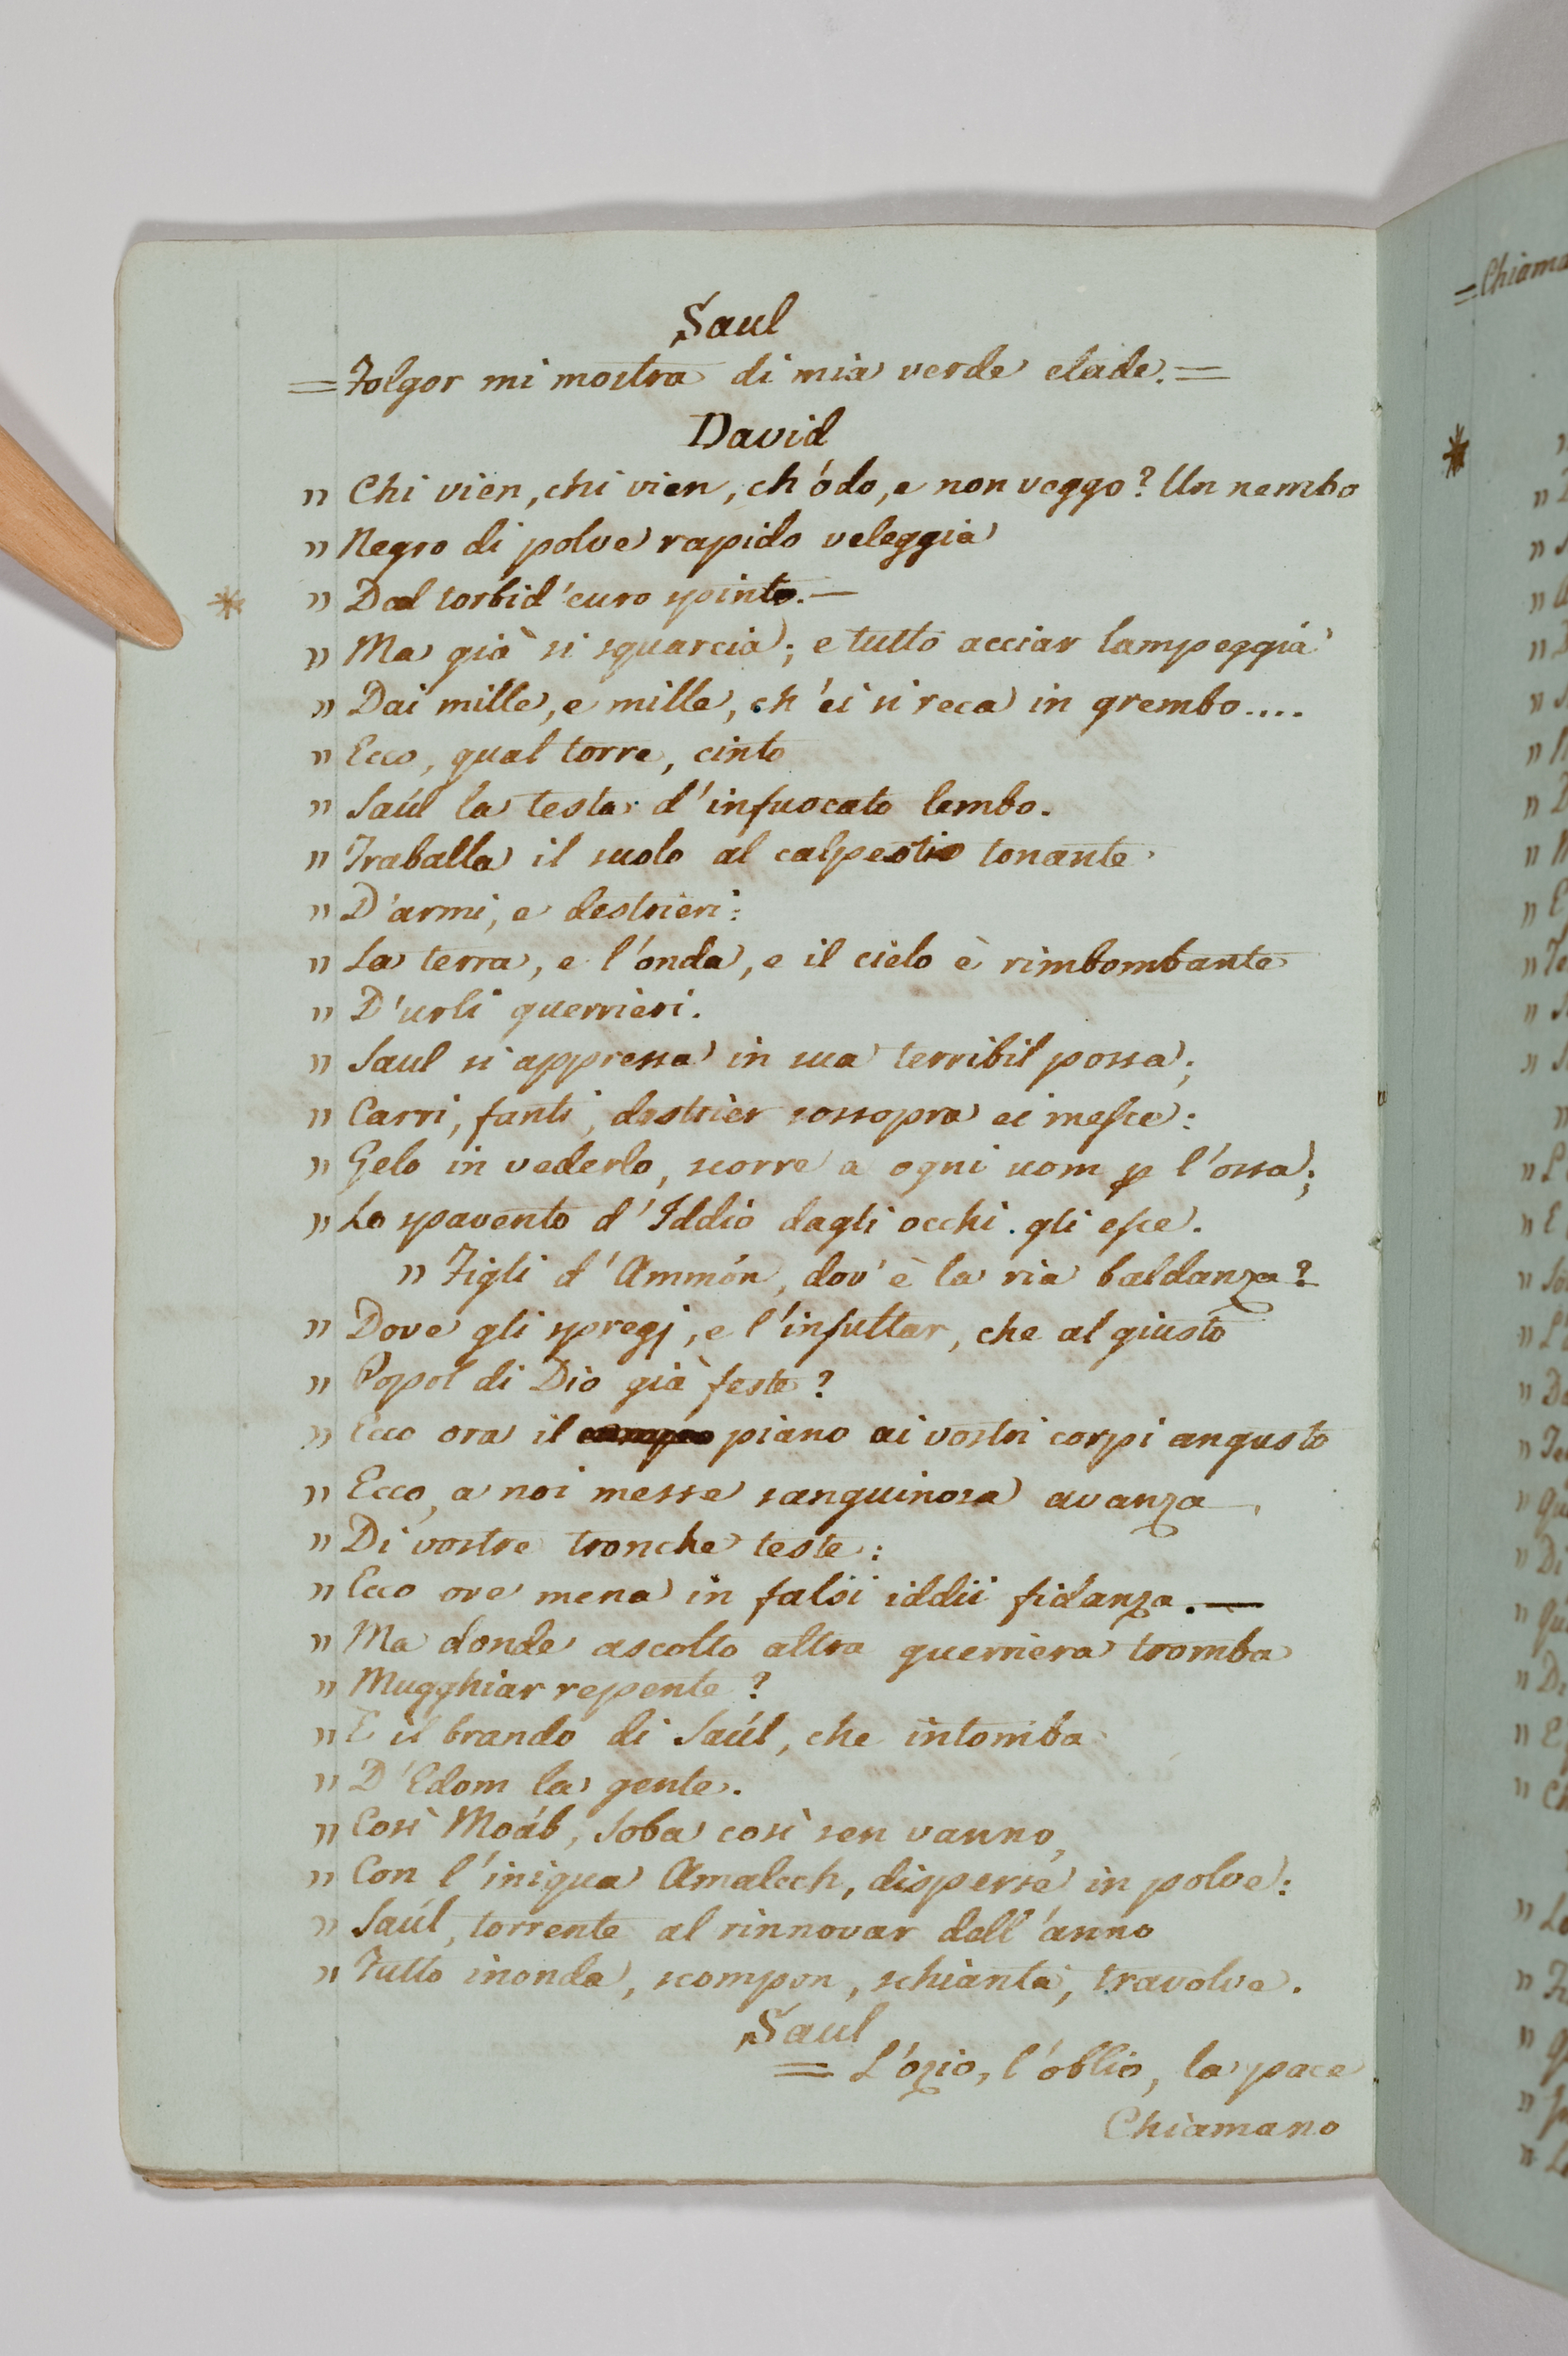 Saul
= Folgor mi mostra di mia verde etade. =
David
" Chi vien, chi vien, ch'ódo, e non veggo? Un nembo
" Negro di polve rapido veleggia
* " Dal torbid'euro spinto. —
" Ma già si squarcia; e tutto acciar lampeggia
" Dai mille, e mille, ch'ei si reca in grembo....
" Ecco, qual torre, cinto
" Saúl la testa d'infuocato lembo.
" Traballa il suolo al calpestio tonante
" D'armi, e destrieri:
" La terra, e l'onda, e il cielo è rimbombante
" D'urli guerrieri.
" Saul si appressa in sua terribil possa;
" Carri, fanti, destrier sossopra ei mesce:
" Gelo in vederlo, scorre a ogni uom p l'ossa;
" Lo spavento d'Iddio dagli occhi gli esce.
" Figli d'Ammón, dov'è la ria baldanza?
" Dove gli spregj, e l'insultar, che al giusto
" Popol di Dio già feste?
" Ecco ora il campo piano ai vostri corpi angusto
" Ecco, a noi messe sanguinosa avanza
" Di vostre tronche teste:
" Ecco ove mena in falsi iddii fidanza. —
" Ma donde ascolto altra guerriera tromba
" Mugghiar repente?
" E il brando di Saúl, che intomba
" D'Edom la gente.
" Così Moáb, Soba così sen vanno,
" Con l'iniqua Amalech, disperse in polve:
" Saúl, torrente al rinnovar dell'anno
" Tutto inonda, scompon, schianta, travolve.
Saul
= L'ozio, l'oblio, la pace
Chiamano
= Chiama
*